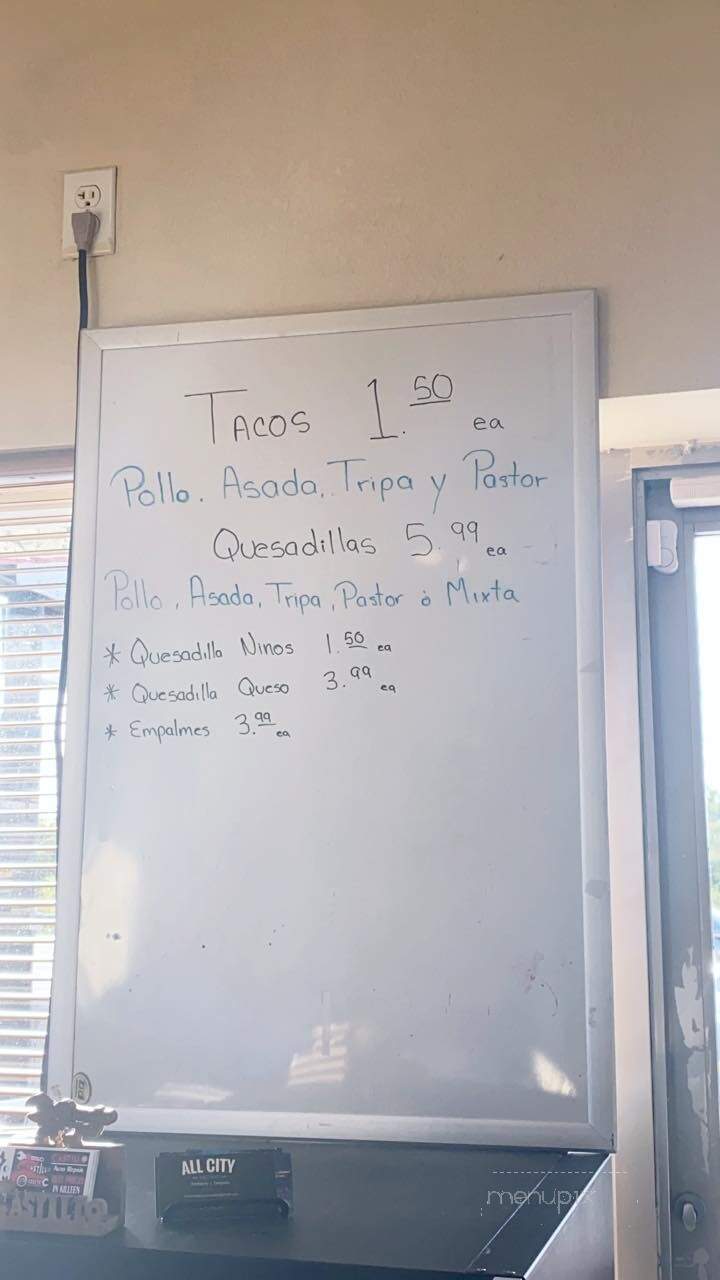 TACOS 1.50 ea
Pollo. Asada, Tripa y Pastor
Quesadillas 5.99 ea
Pollo, Asada, Tripa, Pastor ò Mixta
* Quesadilla Ninos 1.50 ea
* Quesadilla Queso 3.99 ea
* Empalmes 3.99 ea
ALL CITY
Auto Repair
IN KILLEEN